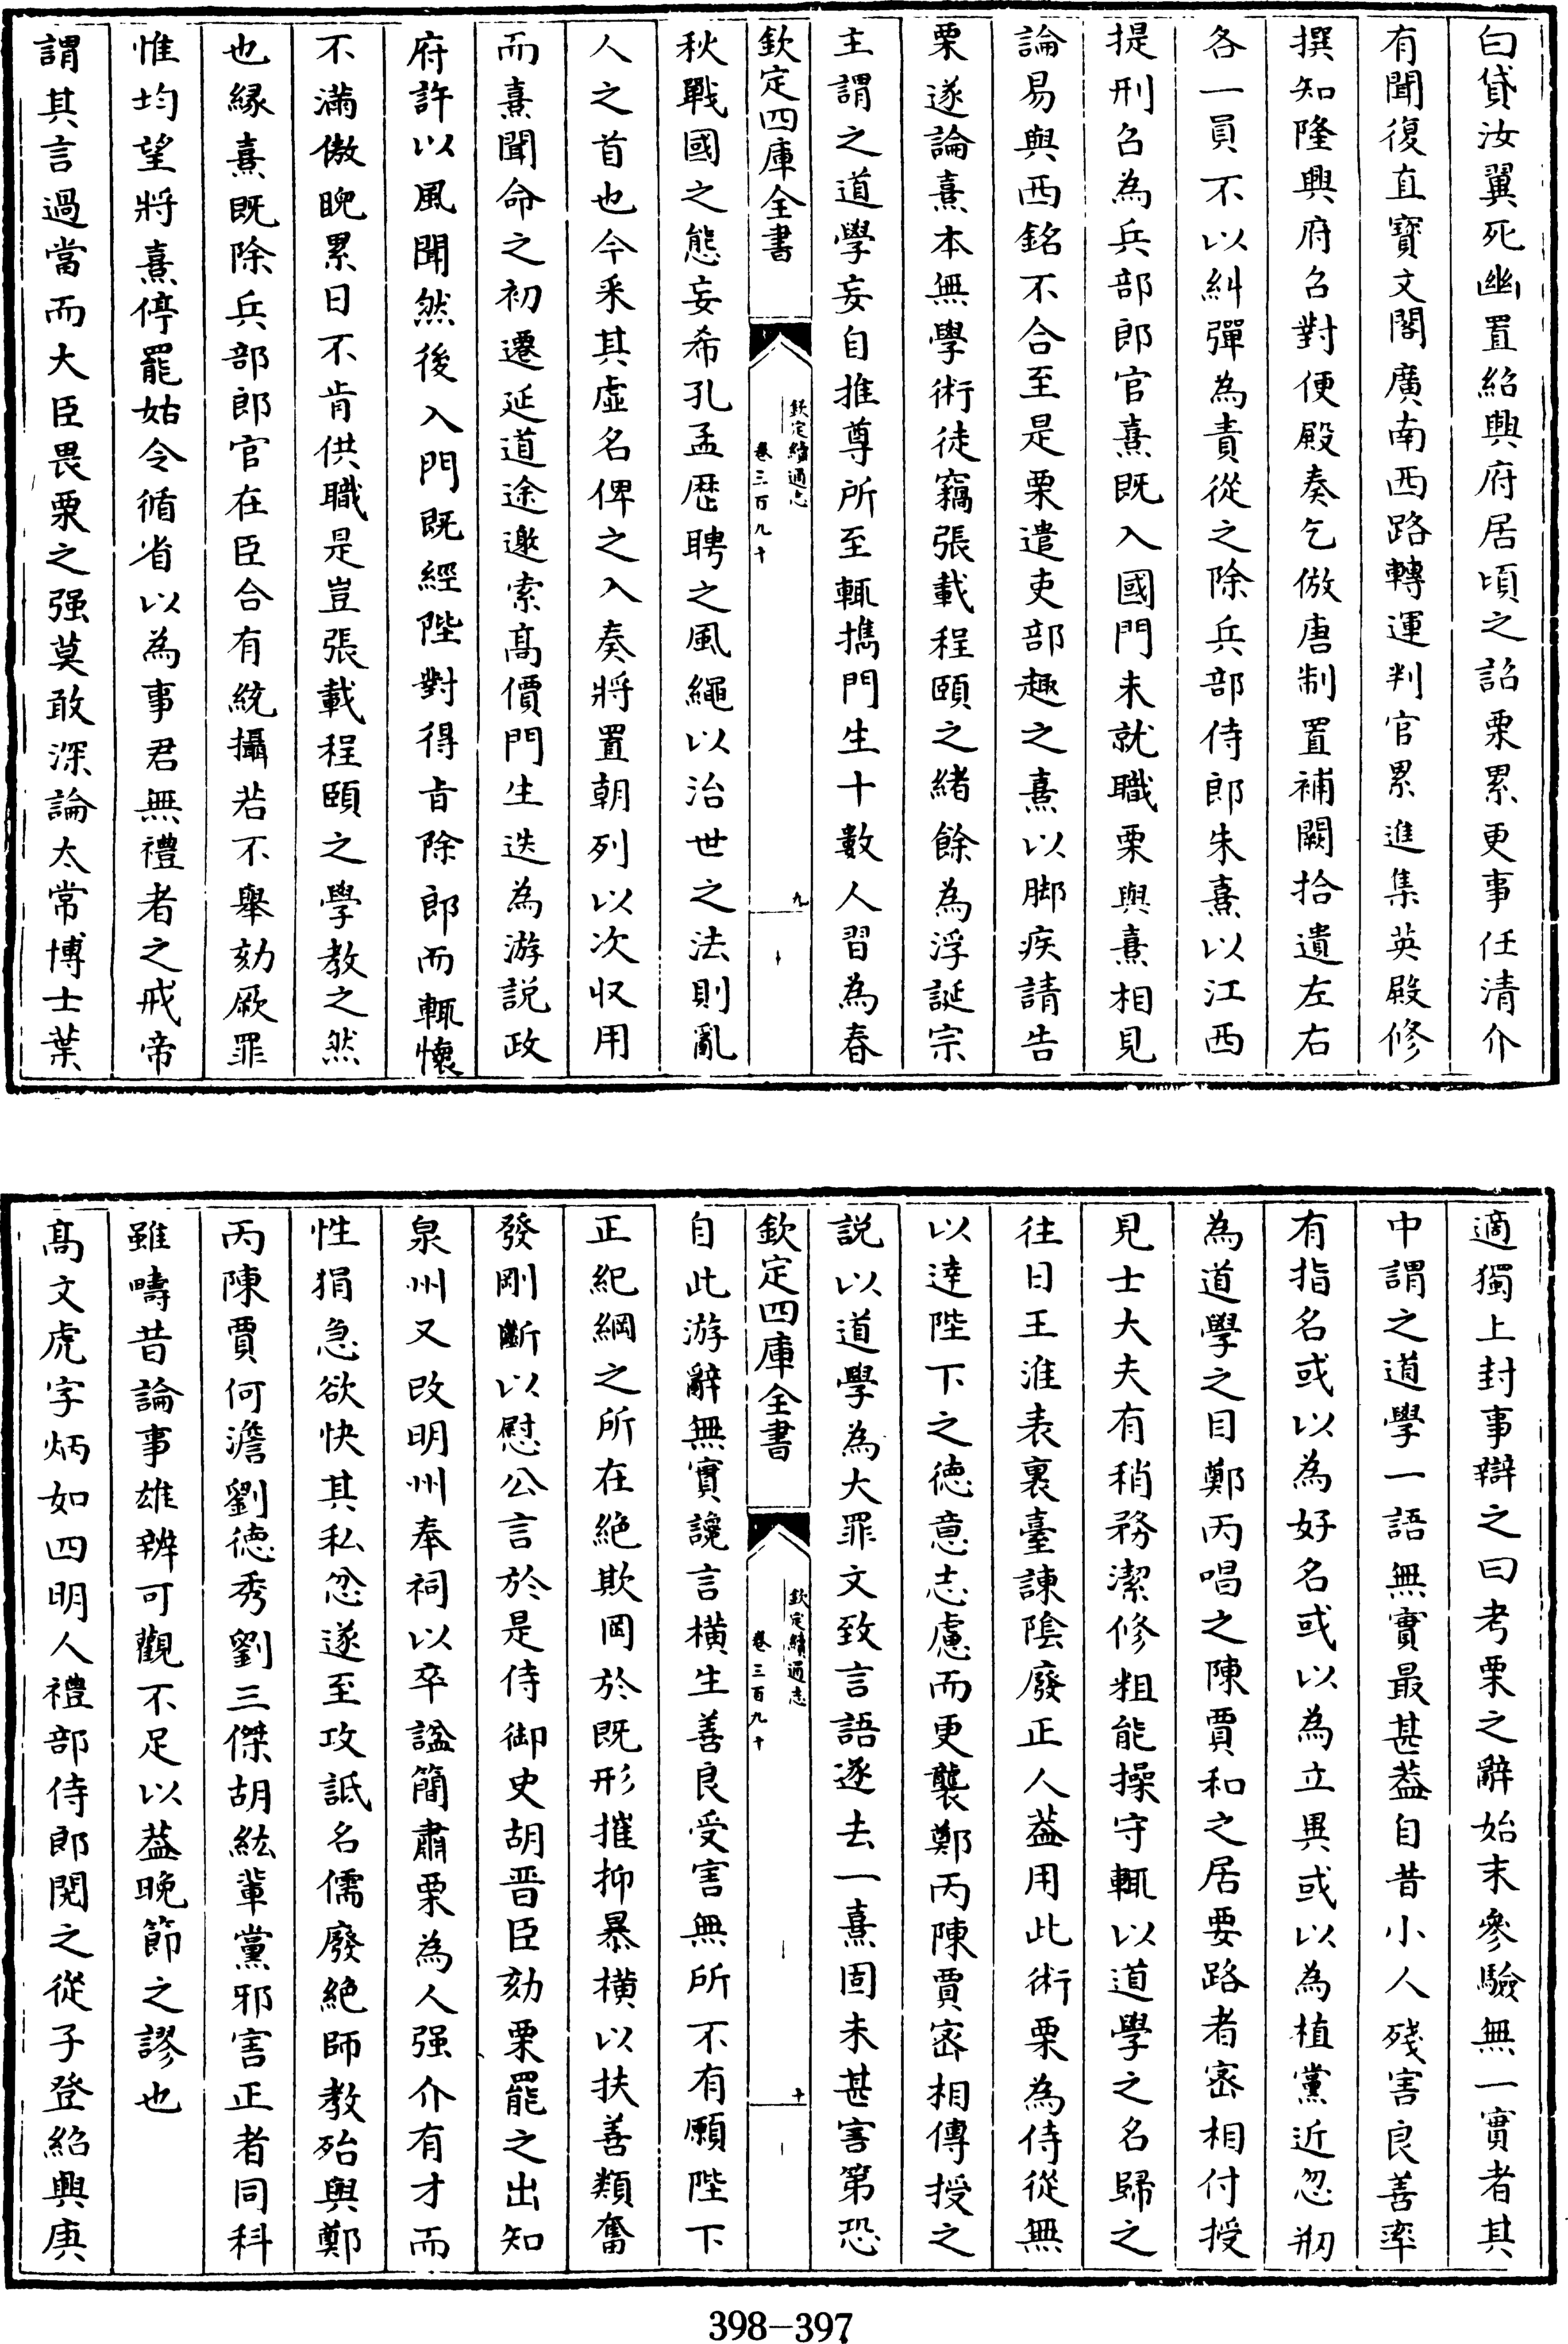 白貸汝翼死幽置紹興府居頃之詔栗累更事任清介
有聞復直寳文閣廣南西路轉運判官累進集英殿修
撰知隆興府召對便殿奏乞倣唐制置補闕拾遺左右
各一員不以糾彈為責從之除兵部侍郎朱熹以江西
提刑召為兵部郎官熹既入國門未就職栗與熹相見
論易與西銘不合至是栗遣吏部趣之熹以脚疾請告
栗遂論熹本無學術徒竊張載程頤之緒餘為浮誕宗
主謂之道學妄自推尊所至輒擕門生十數人習為春
欽定四庫全書
欽定續通志
卷三百九十
九
秋戰國之態妄希孔孟歴聘之風繩以治世之法則亂
人之首也今采其虛名俾之入奏將置朝列以次収用
而熹聞命之初遷延道途邀索髙價門生迭為游説政
府許以風聞然後入門既經陛對得㫖除郎而輒懷
不滿傲睨累日不肯供職是豈張載程頤之學教之然
也緣熹既除兵部郎官在臣合有統攝若不舉劾厥罪
惟均望將熹停罷姑令循省以為事君無禮者之戒帝
謂其言過當而大臣畏栗之强莫敢深論太常博士葉
適獨上封事辯之曰考栗之辭始末參驗無一實者其
中謂之道學一語無實最甚葢自昔小人殘害良善率
有指名或以為好名或以為立異或以為植黨近忽刱
為道學之目鄭丙唱之陳賈和之居要路者密相付授
見士大夫有稍務潔修粗能操守輒以道學之名歸之
往日王淮表裏臺諌隂廢正人葢用此術栗為侍從無
以達陛下之徳意志慮而更襲鄭丙陳賈宻相傳授之
説以道學為大罪文致言語逐去一熹固未甚害第恐
欽定四庫全書
欽定續通志
卷三百九十
十
自此游辭無實讒言横生善良受害無所不有願陛下
正紀綱之所在絶欺罔於既形摧抑暴横以扶善類奮
發剛斷以慰公言於是侍御史胡晋臣劾栗罷之出知
泉州又改明州奉祠以卒諡簡肅栗為人强介有才而
性狷急欲快其私忿遂至攻詆名儒廢絶師教殆與鄭
丙陳賈何澹劉徳秀劉三傑胡紘輩黨邪害正者同科
雖疇昔論事雄辨可觀不足以葢晚節之謬也
髙文虎字炳如四明人禮部侍郎閌之從子登紹興庚
398-397